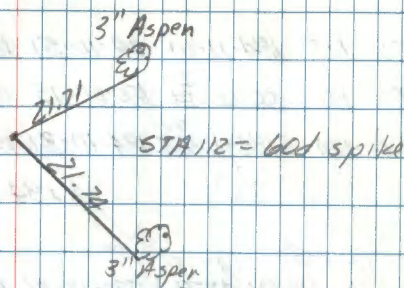 3" Aspen
21.71
STA 112 = 60d spike
21.74
3" Aspen